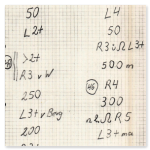 50
L2+
>2+
R3 v W
250
L3+ v Berg
200
L4
50
R3 v Ω L3+
500 m
46 R4
300
R5
L3+ ma